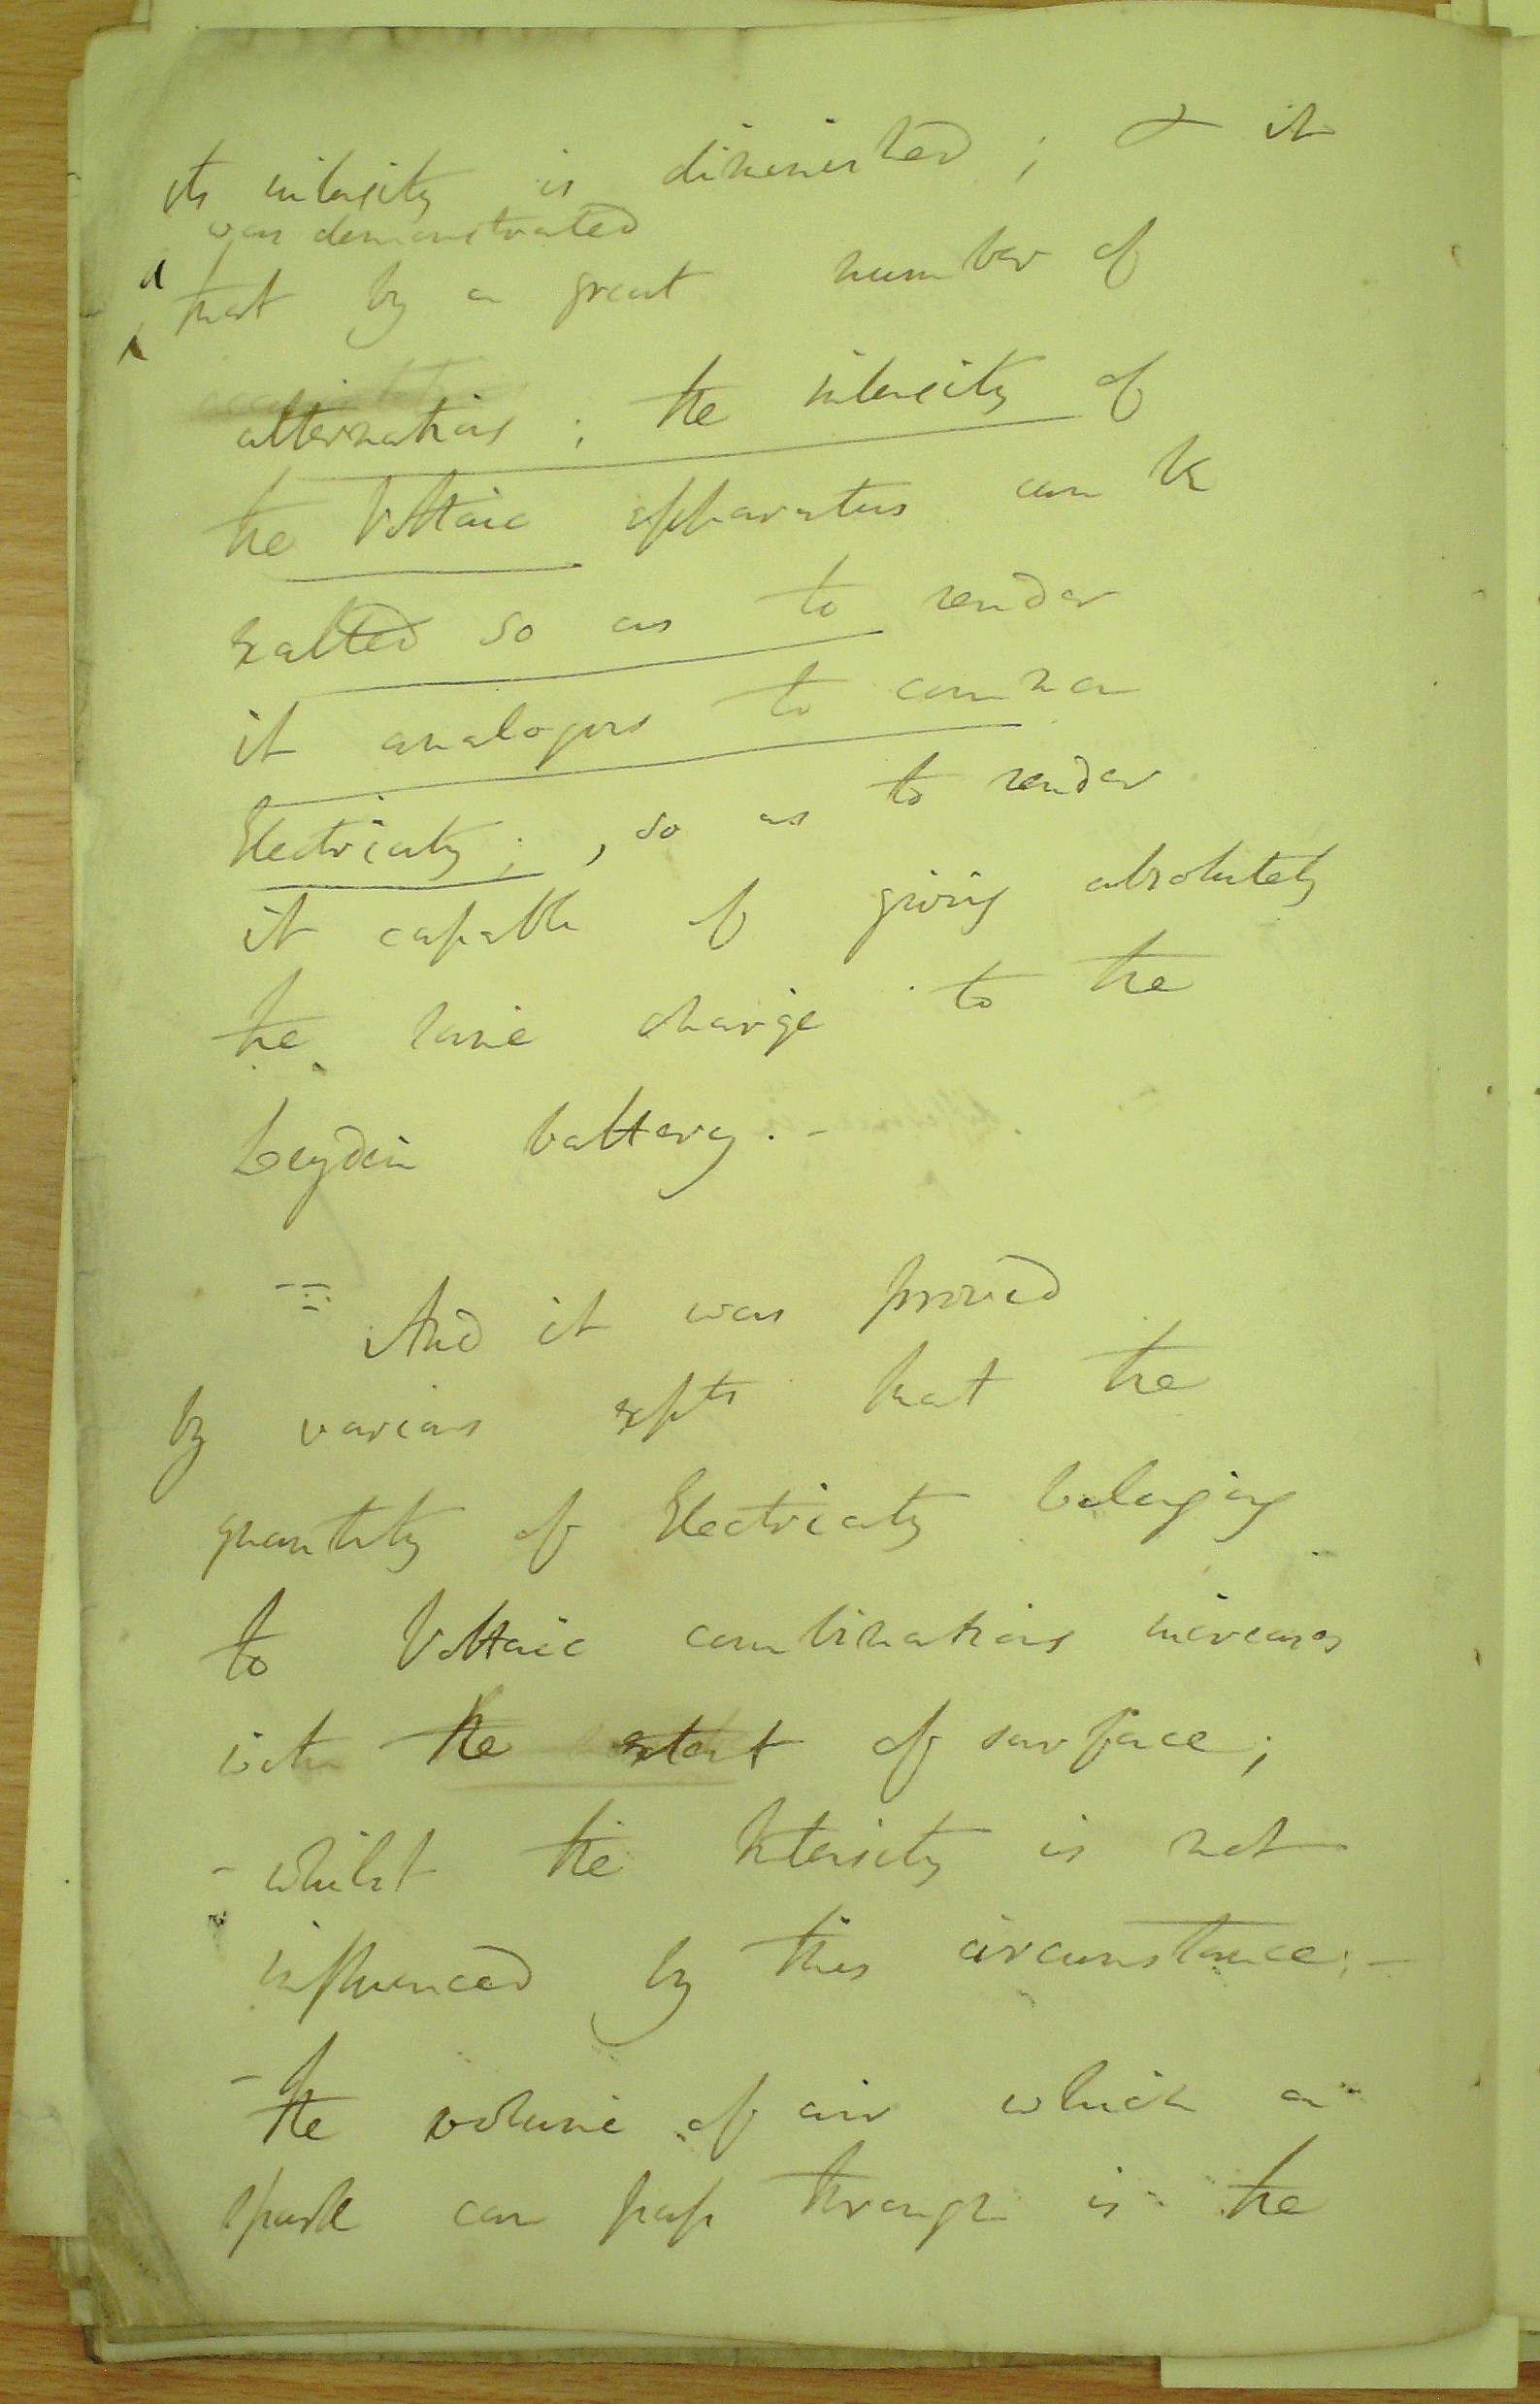 its intensity is diminished; & it
was demonstrated
that by a great number of
alternations; the intensity of
the Voltaic apparatus can be
exalted so as to render
it analogous to common
Electricity; , so as to render
it capable of giving absolutely
the same charge to the
Leyden battery. –
And it was proved
by various expts that the
quantity of Electricity belonging
to Voltaic combinations increases
with the extent of surface;
– whilst the Intensity is not
influenced by this circumstance; –
– the volume of air which a
spark can pass through is the